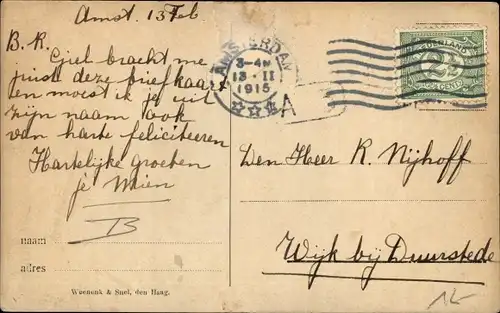 Amst. 13 Feb
B. R.
Giel bracht me
juist deze briefkaart
en moest ik je uit
zijn naam ook
van harte feliciteeren
Hartelijke groeten
je Mien
B
naam
adres
Weenenk & Snel, den Haag.
AMSTERDAM
3-4N
13 · II
1915
A
NEDERLAND
2½
CENT
Den Heer R. Nijhoff
Wijk bij Duurstede